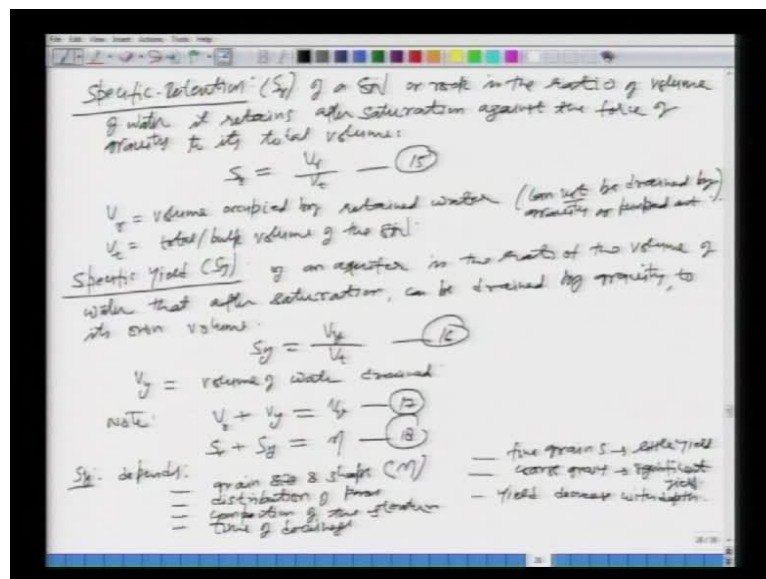 File Edit View Insert Actions Tools Help
Specific-retention (Sr) of a soil or rock is the ratio of volume
of water it retains after saturation against the force of
gravity to its total volume:
Sr = Vr / Vt — 15
Vr = volume occupied by retained water (can not be drained by
gravity or pumped out)
Vt = total/bulk volume of the soil.
Specific Yield (Sy) of an aquifer is the ratio of the volume of
water that after saturation, can be drained by gravity, to
its own volume.
Sy = Vy / Vt — 16
Vy = volume of water drained
Note: Vr + Vy = Vv — 17
Sr + Sy = η — 18
Sy: depends: grain size & shape (η)
— distribution of pores
— compaction of the stratum
— time of drainage
— fine grains → little yield
— coarse grains → significant
yield
— Yield decrease with depth.